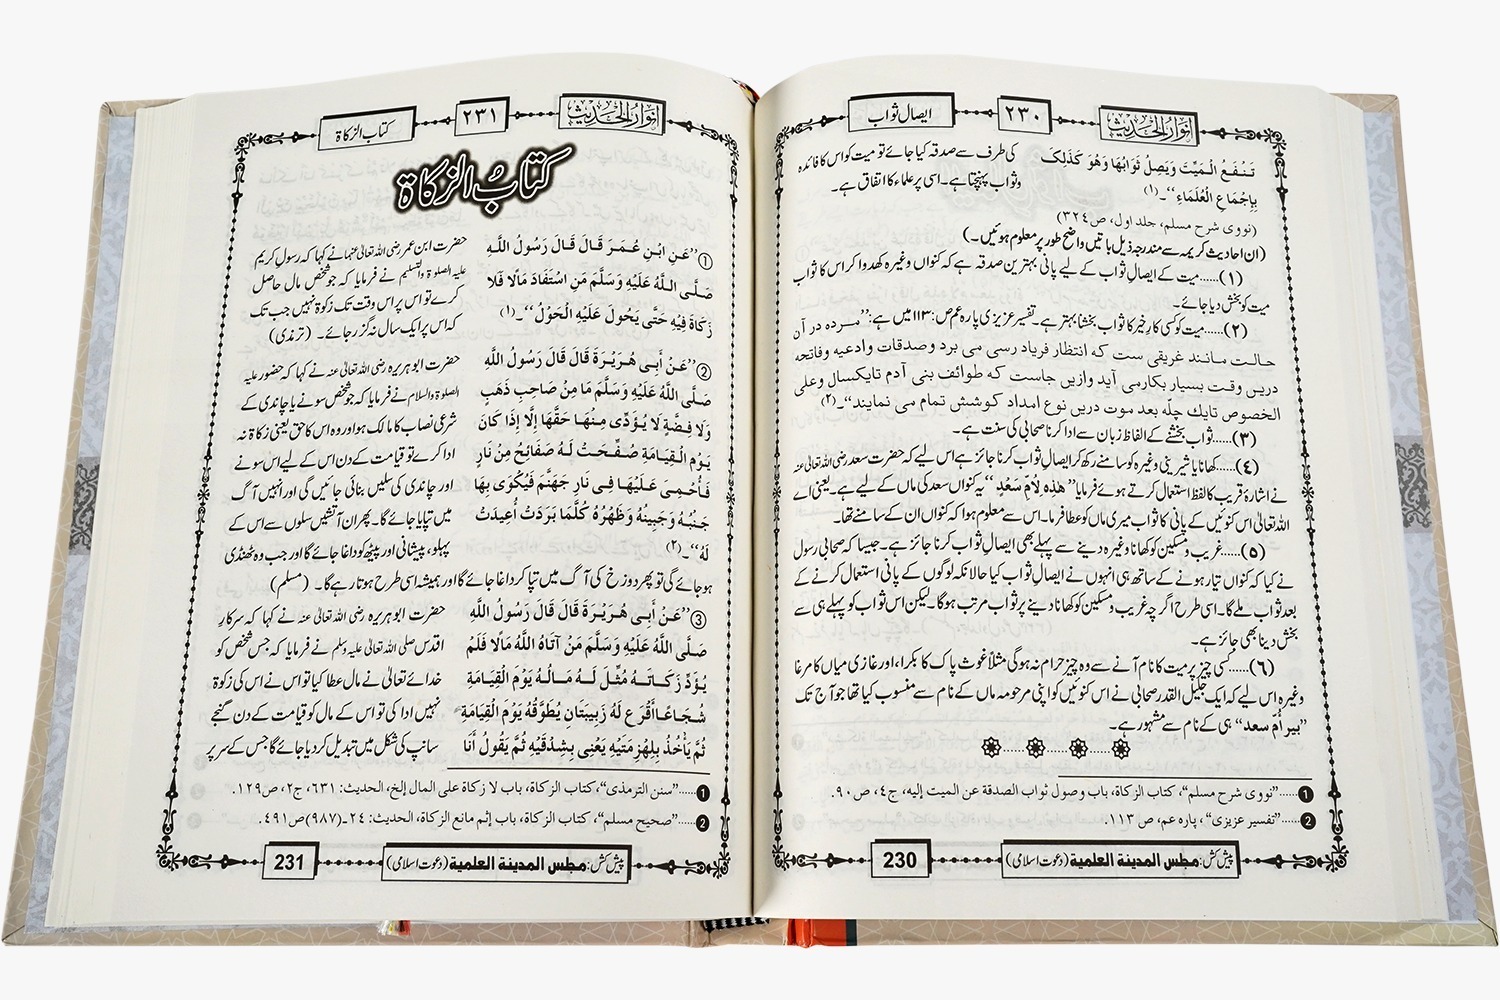 انوارُ الحدیث ٢٣٠ ایصال ثواب
تَنْفَعُ الْمَيِّتَ وَيَصِلُ ثَوَابُهَا وَهُوَ كَذَلِكَ
بِإِجْمَاعِ الْعُلَمَاءِ‘‘۔(١)
(نووی شرح مسلم، جلد اول، ص٣٢٤)
کی طرف سے صدقہ کیا جائے تو میت کو اس کا فائدہ
و ثواب پہنچتا ہے۔ اسی پر علماء کا اتفاق ہے۔
(ان احادیث کریمہ سے مندرجہ ذیل باتیں واضح طور پر معلوم ہوئیں۔)
(١)......میت کے ایصالِ ثواب کے لیے پانی بہترین صدقہ ہے کہ کنواں وغیرہ کھدوا کر اس کا ثواب
میت کو بخش دیا جائے۔
(٢)......میت کو کسی کارِ خیر کا ثواب بخشنا بہتر ہے۔ تفسیر عزیزی پارہ عم ص:١١٣ میں ہے: ’’مردہ در آں
حالت مانند غریقی ست کہ انتظار فریاد رسی می برد و صدقات وادعیہ و فاتحہ
دریں وقت بسیار بکار می آید وازیں جاست کہ طوائف بنی آدم تایکسال وعلی
الخصوص تایك چلّہ بعد موت دریں نوع امداد کوشش تمام می نمایند‘‘۔(٢)
(٣)......ثواب بخشنے کے الفاظ زبان سے ادا کرنا صحابی کی سنت ہے۔
(٤)......کھانا یا شیرینی وغیرہ کو سامنے رکھ کر ایصالِ ثواب کرنا جائز ہے اس لیے کہ حضرت سعد رضی اللہ تعالیٰ عنہ
نے اشارۂ قریب کا لفظ استعمال کرتے ہوئے فرمایا ’’هٰذِهِ لِأُمِّ سَعْدٍ‘‘ یہ کنواں سعد کی ماں کے لیے ہے۔ یعنی اے
اللہ تعالیٰ اس کنوئیں کے پانی کا ثواب میری ماں کو عطا فرما۔ اس سے معلوم ہوا کہ کنواں ان کے سامنے تھا۔
(٥)......غریب و مسکین کو کھانا وغیرہ دینے سے پہلے بھی ایصالِ ثواب کرنا جائز ہے۔ جیسا کہ صحابی رسول
نے کیا کہ کنواں تیار ہونے کے ساتھ ہی انہوں نے ایصالِ ثواب کیا حالانکہ لوگوں کے پانی استعمال کرنے کے
بعد ثواب ملے گا۔ اسی طرح اگرچہ غریب و مسکین کو کھانا دینے پر ثواب مرتب ہوگا۔ لیکن اس ثواب کو پہلے ہی سے
بخش دینا بھی جائز ہے۔
(٦)......کسی چیز پر میت کا نام آنے سے وہ چیز حرام نہ ہوگی مثلاً غوث پاک کا بکرا، اور غازی میاں کا مرغا
وغیرہ اس لیے کہ ایک جلیل القدر صحابی نے اس کنوئیں کو اپنی مرحومہ ماں کے نام سے منسوب کیا تھا جو آج تک
’’بیر اُمّ سعد‘‘ ہی کے نام سے مشہور ہے۔
1......’’نووی شرح مسلم‘‘، کتاب الزکاة، باب وصول ثواب الصدقة عن المیت إلیه، ج٤، ص٩٠.
2......’’تفسیر عزیزی‘‘، پاره عم، ص١١٣.
پیش کش: مجلس المدینة العلمیة (دعوت اسلامی) 230
انوارُ الحدیث ٢٣١ کتاب الزکاة
کتابُ الزکاة
① ’’عَنِ ابْنِ عُمَرَ قَالَ قَالَ رَسُولُ اللَّهِ
صَلَّى اللَّهُ عَلَيْهِ وَسَلَّمَ مَنِ اسْتَفَادَ مَالًا فَلَا
زَكَاةَ فِيهِ حَتَّى يَحُولَ عَلَيْهِ الْحَوْلُ‘‘۔(١)
حضرت ابن عمر رضی اللہ تعالیٰ عنہما نے کہا کہ رسول کریم
علیہ الصلوٰۃ والتسلیم نے فرمایا کہ جو شخص مال حاصل
کرے تو اس پر اس وقت تک زکوٰۃ نہیں جب تک
کہ اس پر ایک سال نہ گزر جائے۔ (ترمذی)
② ’’عَنْ أَبِي هُرَيْرَةَ قَالَ قَالَ رَسُولُ اللَّهِ
صَلَّى اللَّهُ عَلَيْهِ وَسَلَّمَ مَا مِنْ صَاحِبِ ذَهَبٍ
وَلَا فِضَّةٍ لَا يُؤَدِّى مِنْهَا حَقَّهَا إِلَّا إِذَا كَانَ
يَوْمُ الْقِيَامَةِ صُفِّحَتْ لَهُ صَفَائِحُ مِنْ نَارٍ
فَأُحْمِيَ عَلَيْهَا فِي نَارِ جَهَنَّمَ فَيُكْوَى بِهَا
جَنْبُهُ وَجَبِينُهُ وَظَهْرُهُ كُلَّمَا بَرَدَتْ أُعِيدَتْ
لَهُ‘‘۔(٢)
حضرت ابوہریرہ رضی اللہ تعالیٰ عنہ نے کہا کہ حضور علیہ
الصلوٰۃ والسلام نے فرمایا کہ جو شخص سونے یا چاندی کے
شرعی نصاب کا مالک ہو اور وہ اس کا حق یعنی زکاۃ نہ
ادا کرے تو قیامت کے دن اس کے لیے اس سونے
اور چاندی کی سلیں بنائی جائیں گی اور انہیں آگ
میں تپایا جائے گا۔ پھر ان آتشیں سلوں سے اس کے
پہلو، پیشانی اور پیٹھ کو داغا جائے گا اور جب وہ ٹھنڈی
ہو جائے گی تو پھر دوزخ کی آگ میں تپا کر داغا جائے گا اور ہمیشہ اسی طرح ہوتا رہے گا۔ (مسلم)
③ ’’عَنْ أَبِي هُرَيْرَةَ قَالَ قَالَ رَسُولُ اللَّهِ
صَلَّى اللَّهُ عَلَيْهِ وَسَلَّمَ مَنْ آتَاهُ اللَّهُ مَالًا فَلَمْ
يُؤَدِّ زَكَاتَهُ مُثِّلَ لَهُ مَالُهُ يَوْمَ الْقِيَامَةِ
شُجَاعًا أَقْرَعَ لَهُ زَبِيبَتَانِ يُطَوَّقُهُ يَوْمَ الْقِيَامَةِ
ثُمَّ يَأْخُذُ بِلِهْزِمَتَيْهِ يَعْنِى بِشِدْقَيْهِ ثُمَّ يَقُولُ أَنَا
حضرت ابوہریرہ رضی اللہ تعالیٰ عنہ نے کہا کہ سرکارِ
اقدس صلی اللہ تعالیٰ علیہ وسلم نے فرمایا کہ جس شخص کو
خدائے تعالیٰ نے مال عطا کیا تو اس نے اس کی زکوٰۃ
نہیں ادا کی تو اس کے مال کو قیامت کے دن گنجے
سانپ کی شکل میں تبدیل کر دیا جائے گا جس کے سر پر
1......’’سنن الترمذی‘‘، کتاب الزکاة، باب لا زکاة علی المال إلخ، الحدیث: ٦٣١، ج٢، ص١٢٩.
2......’’صحیح مسلم‘‘، کتاب الزکاة، باب إثم مانع الزکاة، الحدیث: ٢٤۔(٩٨٧)ص٤٩١.
پیش کش: مجلس المدینة العلمیة (دعوت اسلامی) 231